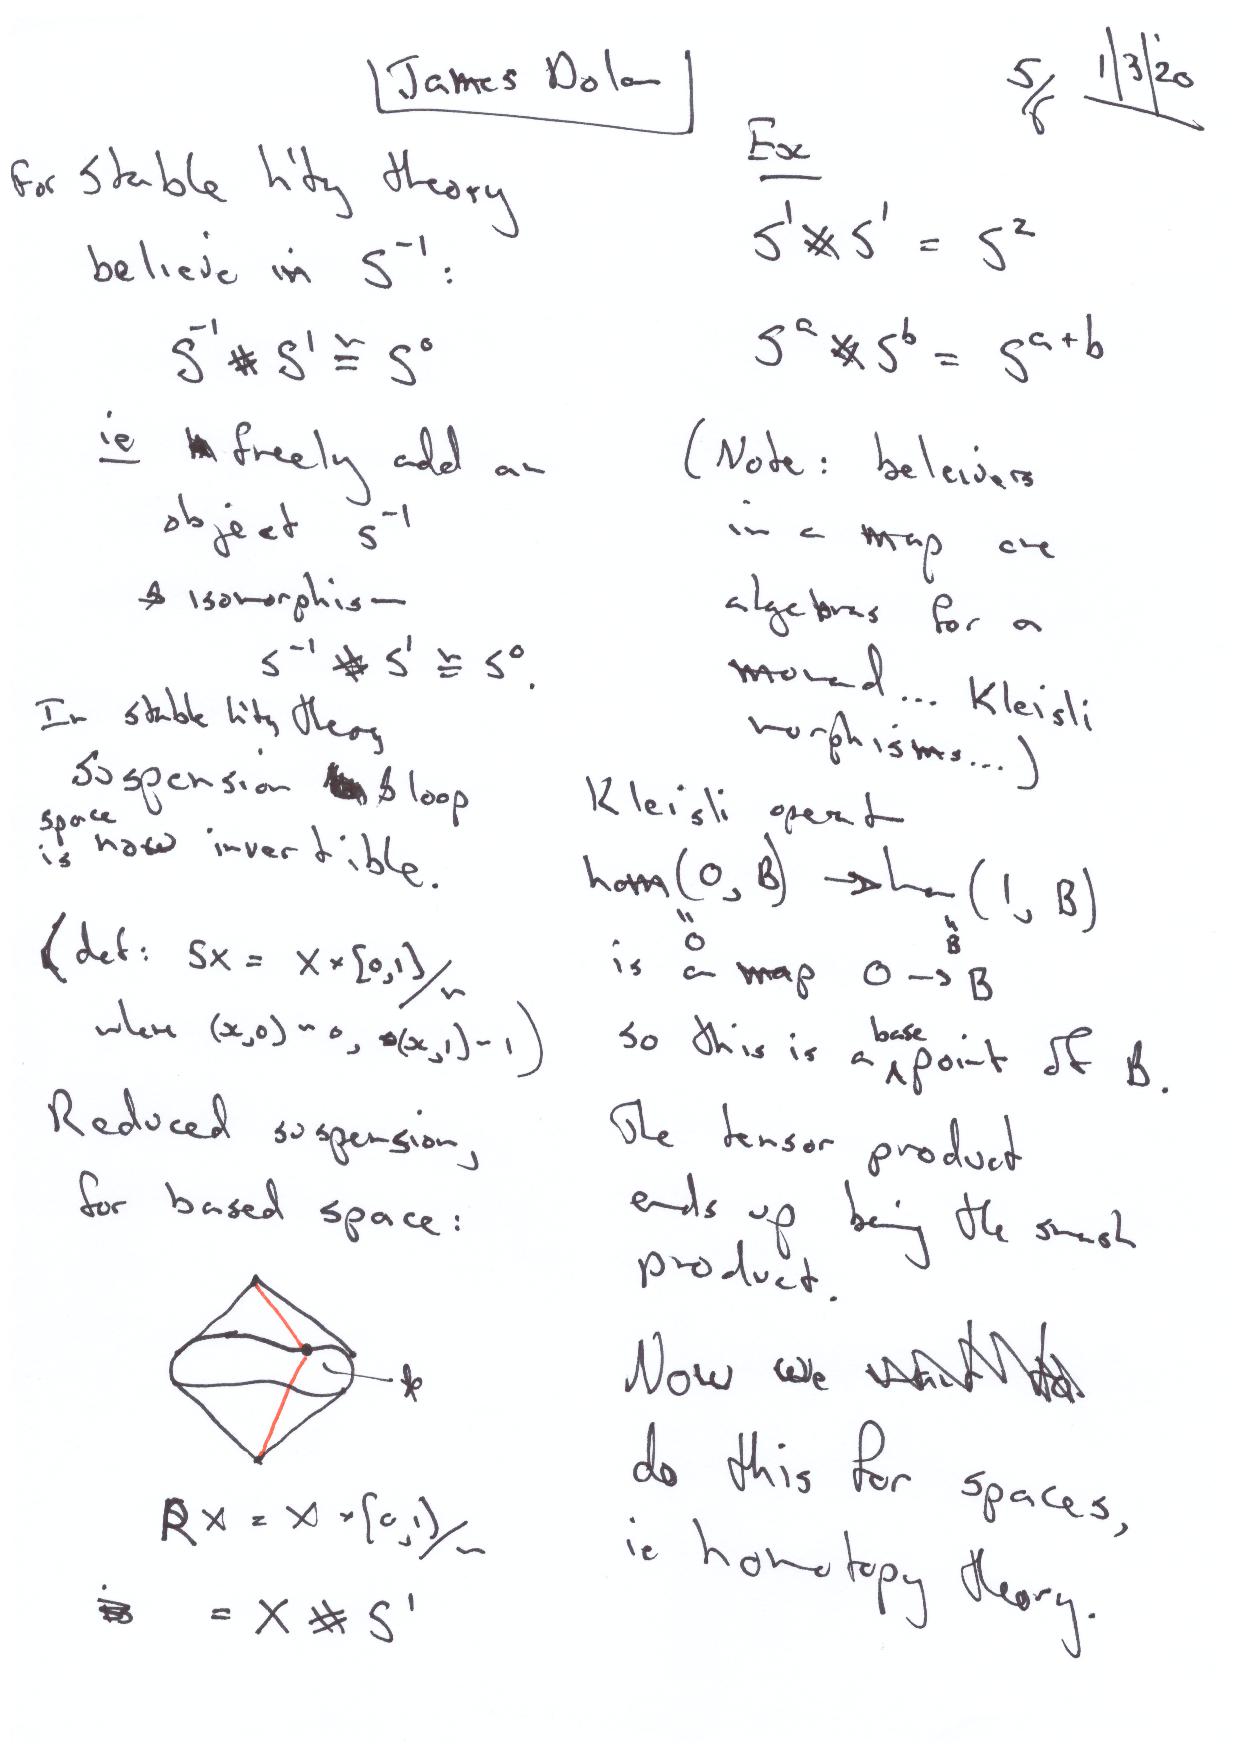 James Dolan
5/8
1/3/'20
For stable h'ty theory
believe in S⁻¹:
S⁻¹ # S¹ ≅ S⁰
ie freely add an
object S⁻¹
& isomorphism
S⁻¹ # S¹ ≅ S⁰.
In stable h'ty theory
suspension & loop
space
is now invertible.
(def: SX = X × [0,1]/~
where (x,0) ~ 0, (x,1) ~ 1)
Reduced suspension,
for based space:
*
RX = X × [0,1]/~
= X # S¹
Ex
S¹ # S¹ = S²
Sᵃ # Sᵇ = Sᵃ⁺ᵇ
(Note: beleivers
in a map are
algebras for a
monad... Kleisli
morphisms...)
Kleisli operat
hom(0, B) → hom(1, B)
" "
0 B
is a map 0 → B
so this is a base point of B.
The tensor product
ends up being the smash
product.
Now we
do this for spaces,
ie homotopy theory.